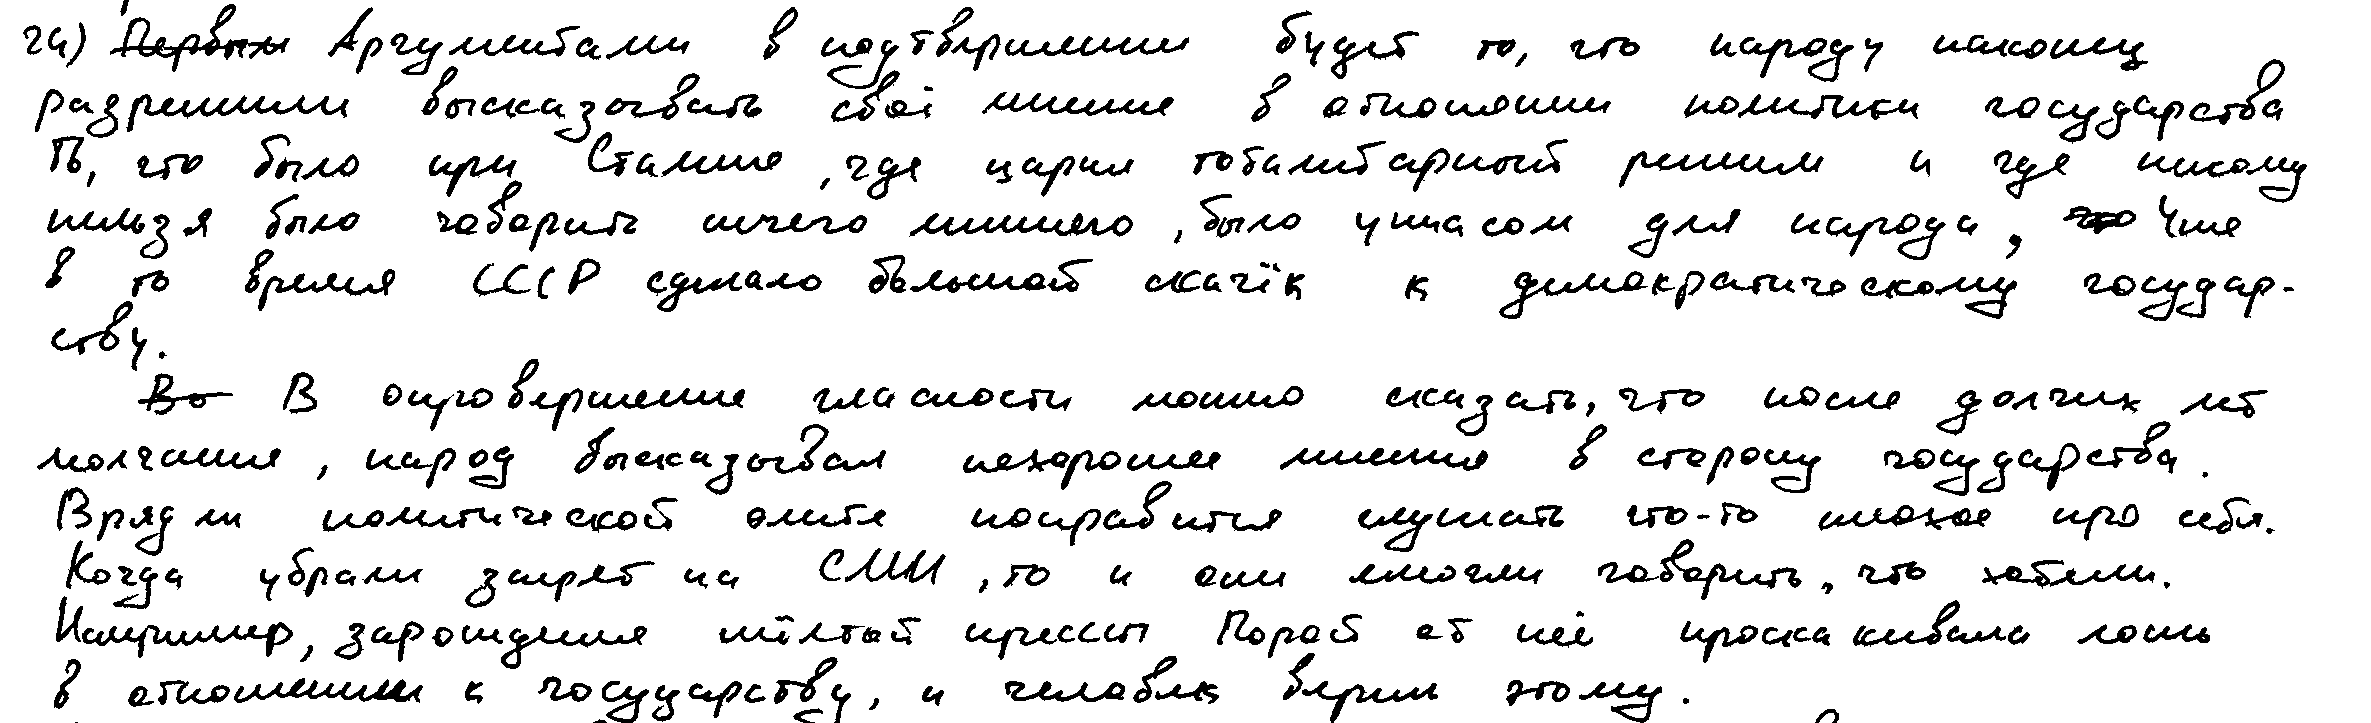 24) Первым Аргументами в подтверждении будет то, что народу наконец
разрешили высказывать своё мнение в отношении политики государства
То, что было при Сталине, где царил тоталитарный режим и где никому
нельзя было говорить ничего лишнего, было ужасом для народа, что Уже
в то время СССР сделало большой скачёк к демократическому государ-
ству.
Во В опровержение гласности можно сказать, что после долгих лет
молчания, народ высказывал нехорошее мнения в сторону государства.
Вряд ли политической элите понравится слушать что-то плохое про себя.
Когда убрали запрет на СМИ, то и они смогли говорить, что хотели.
Например, зарождение жёлтой прессы Порой от неё проскакивала ложь
в отношении к государству, и человек верил этому.